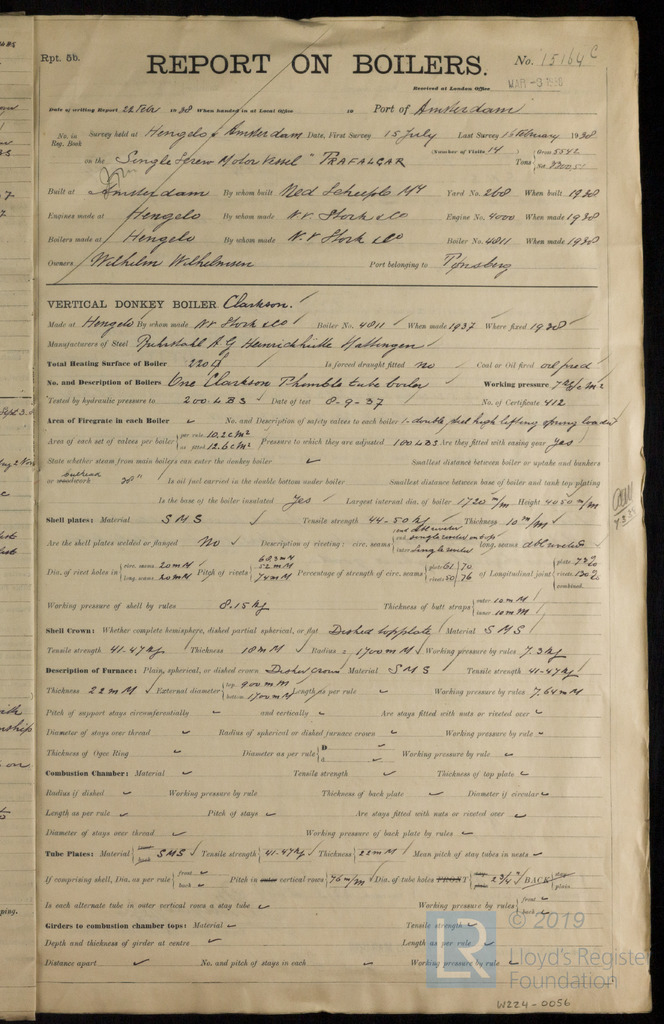 Rpt. 5b.
REPORT ON BOILERS.
No. 15164 C
Received at London Office
Date of writing Report 22 Febr 1938 When handed in at Local Office 19 Port of Amsterdam
No. in Reg. Book
Survey held at Hengelo & Amsterdam Date, First Survey 15 July Last Survey 16 February 1938
(Number of Visits 14)
on the Single Screw Motor Vessel "TRAFALGAR Tons { Gross 5542
Net
Built at Amsterdam By whom built Ned Scheepsb My Yard No. 268 When built 1938
Engines made at Hengelo By whom made N.V. Stork & Co Engine No. 4000 When made 1938
Boilers made at Hengelo By whom made N.V Stork & Co Boiler No. 4811 When made 1938
Owners Wilhelm Wilhelmsen Port belonging to Tønsberg
VERTICAL DONKEY BOILER Clarkson.
Made at Hengelo By whom made NV Stork & Co Boiler No. 4811 When made 1937 Where fixed 1938
Manufacturers of Steel Ruhrstahl A.G Heinrichhütte Hattingen
Total Heating Surface of Boiler 220 Is forced draught fitted No Coal or Oil fired oil fired
No. and Description of Boilers One Clarkson Thimble tube boiler Working pressure
Tested by hydraulic pressure to 200 LBS Date of test 8-9-37 No. of Certificate 412
Area of Firegrate in each Boiler No. and Description of safety valves to each boiler 1-double, steel high lifting spring loaded
Area of each set of valves per boiler { per rule 10.2 cM² as fitted 12.6 cM² Pressure to which they are adjusted 100 LBS Are they fitted with easing gear yes
State whether steam from main boilers can enter the donkey boiler Smallest distance between boiler or uptake and bunkers
or woodwork bulkhead 38" Is oil fuel carried in the double bottom under boiler Smallest distance between base of boiler and tank top plating
Is the base of the boiler insulated Yes Largest internal dia. of boiler 1720 m/m Height 4050 m/m
Shell plates: Material SMS Tensile strength 44-50 Kg Thickness 10 m/m
Are the shell plates welded or flanged No Description of riveting: circ. seams { end inter. single riveted long. seams dbl riveted
Dia. of rivet holes in { circ. seams 20 mM long. seams 20 mM Pitch of rivets { 52 mM 74 mM Percentage of strength of circ. seams { plate 61/70 rivets 50/76 of Longitudinal joint { plate 73% rivets combined
Working pressure of shell by rules 8.15 Kg Thickness of butt straps { outer 10 mM inner 10 mM
Shell Crown: Whether complete hemisphere, dished partial spherical, or flat Dished topplate Material SMS
Tensile strength 41-47 Kg Thickness 18 mM Radius = 1700 mM Working pressure by rules 7.3 Kg
Description of Furnace: Plain, spherical, or dished crown Dished crown Material SMS Tensile strength 41-47 Kg
Thickness 22 mM External diameter { top 900 mM bottom 1700 mM Length as per rule Working pressure by rules 7.64 mM
Pitch of support stays circumferentially and vertically Are stays fitted with nuts or riveted over
Diameter of stays over thread Radius of spherical or dished furnace crown Working pressure by rule
Thickness of Ogee Ring Diameter as per rule { D d Working pressure by rule
Combustion Chamber: Material Tensile strength Thickness of top plate
Radius if dished Working pressure by rule Thickness of back plate Diameter if circular
Length as per rule Pitch of stays Are stays fitted with nuts or riveted over
Diameter of stays over thread Working pressure of back plate by rules
Tube Plates: Material { front back SMS Tensile strength { 41-47 Kg Thickness { 22 mM Mean pitch of stay tubes in nests
If comprising shell, Dia. as per rule { front back Pitch in outer vertical rows { 76 m/m Dia. of tube holes FRONT { stay plain 2¾" BACK { stay plain
Is each alternate tube in outer vertical rows a stay tube Working pressure by rules { front back
Girders to combustion chamber tops: Material Tensile strength
Depth and thickness of girder at centre Length as per rule
Distance apart No. and pitch of stays in each Working pressure by rule
LR
© 2019
Lloyd's Register
Foundation
W224-0056